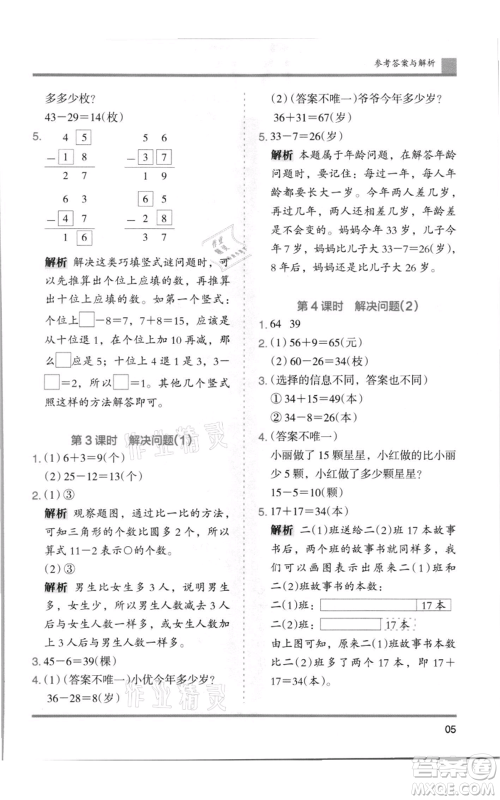 参考答案与解析
多多少枚?
43-29=14(枚)
5. 4 5 5 6
- 1 8 - 3 7
2 7 1 9
6 3 6 4
- 4 7 - 2 8
1 6 3 6
解析 解决这类巧填竖式谜问题时,可
以先推算出个位上应填的数,再推算
出十位上应填的数。如第一个竖式:
个位上□-8=7,7+8=15,15-8=
7,从十位退1,在个位上加10再减,
□应是5;十位上4退1是3,3-
□=2,所以□=1。其他几个竖式
照这样的方法解答即可。
第3课时 解决问题(1)
1. (1) 6+3=9(个)
(2) 25-12=13(个)
2. (1) ③
解析 观察题图,通过一一对比的方法,
可知三角形的个数比圆多2个,所以
算式11-2表示○的个数。
(2) ③
解析 男生比女生多3人,说明男生
多,女生少,所以男生人数减去3人就
与女生人数同样多,也就是女生人数
加上3人就与男生人数同样多。
3. 45-6=39(棵)
4. (1)(答案不唯一)小优今年多少岁?
36-28=8(岁)
(2)(答案不唯一)爷爷今年多少岁?
36+31=67(岁)
5. 33-7=26(岁)
解析 本题属于年龄问题,在解答年龄
问题时,要记住:每过一年,每人都增
加一岁,今年两人差几岁,再过几年还
是差几岁,几年前两人也差几岁,年龄
差是不会变的。今年妈妈33岁,儿子
今年7岁,妈妈比儿子大33-7=
26(岁),5年后,妈妈还是比儿子大26
岁。
第4课时 解决问题(2)
1. 64 39
2. (1) 56+9=65(元)
(2) 60-26=34(枝)
3. (选择的信息不同,答案也不同)
① 34+15=49(本)
② 34-8=26(本)
4. (答案不唯一)
小丽做了15颗星星,小红做的比小丽
少5颗,小红做了多少颗星星?
15-5=10(颗)
5. 解析 二(1)班送给二(2)班17本故事
书后,两个班的故事书的本数同样多,
可以画图表示出原来二(1)班和原来
二(2)班故事书的本数:
二(1)班: 17本
二(2)班: 17本
由图可以看出原来二(1)班的故事书
比二(2)班多2个17本,即多17+
17=34(本)。
05
作业精灵
作业精灵
MXQE.COM